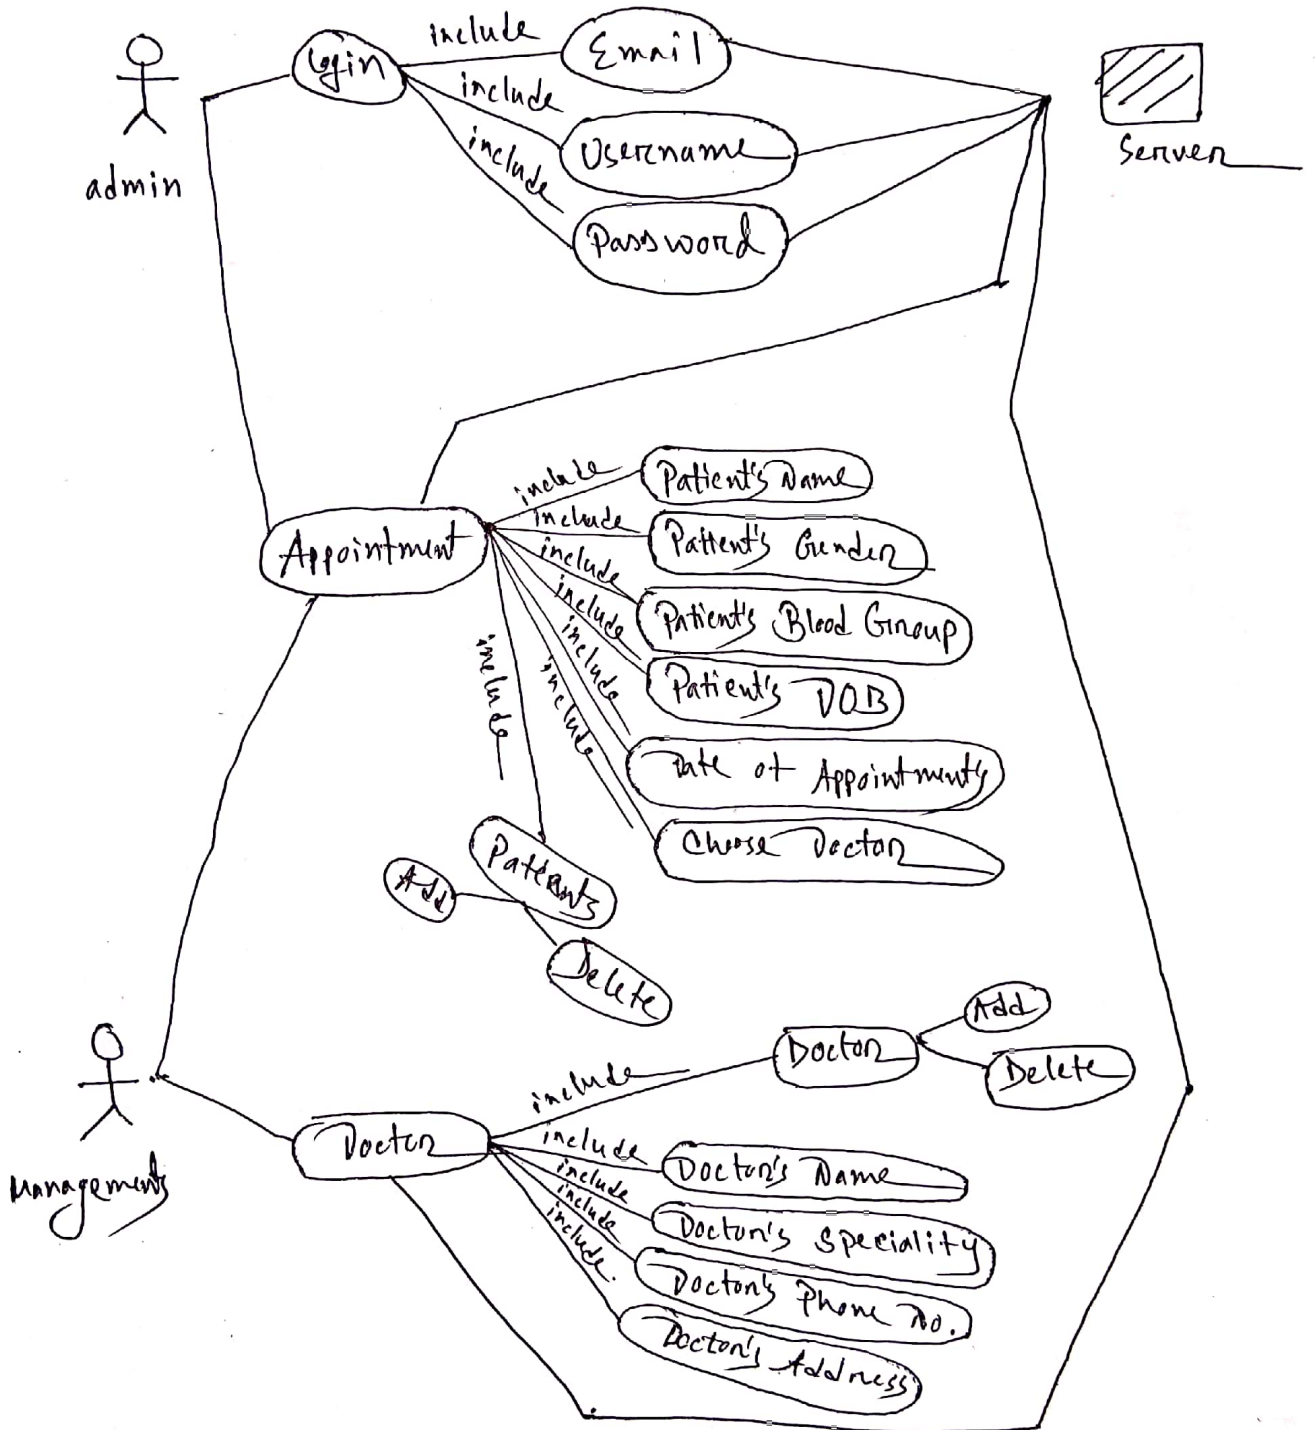 include
Login
Email
include
Username
include
Password
admin
Server
include
Patient's Name
include
Patient's Gender
Appointment
include
Patient's Blood Group
include
Patient's DOB
include
Date of Appointment's
include
Choose Doctor
include
Patients
Add
Delete
Add
Doctor
Delete
include
Managements
Doctor
include
Doctor's Name
include
Doctor's Speciality
include
Doctor's Phone No.
include
Doctor's Address